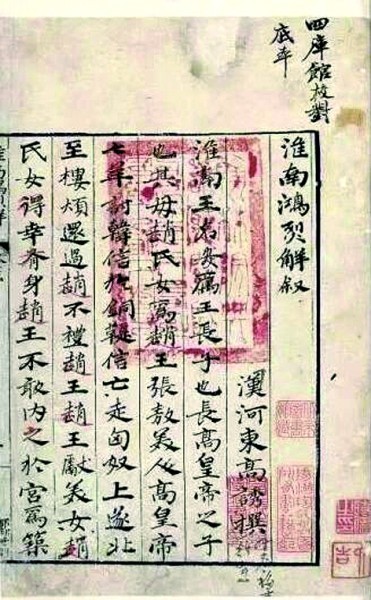 四庫館校對
底本
淮南鴻烈解叙
漢河東高誘撰
淮南王名安厲王長子也長高皇帝之子
也其母趙氏女為趙王張敖美人高皇帝
七年討韓信於銅鞮信亡走匈奴上遂北
至樓煩還過趙不禮趙王趙王獻美女趙
氏女得幸有身趙王不敢內之於宮為築